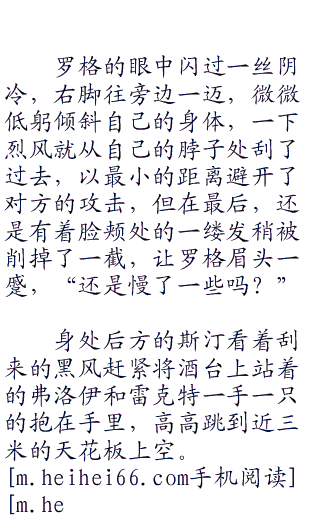 罗格的眼中闪过一丝阴
冷，右脚往旁边一迈，微微
低躬倾斜自己的身体，一下
烈风就从自己的脖子处刮了
过去，以最小的距离避开了
对方的攻击，但在最后，还
是有着脸颊处的一缕发稍被
削掉了一截，让罗格眉头一
蹙，“还是慢了一些吗？”
身处后方的斯汀看着刮
来的黑风赶紧将酒台上站着
的弗洛伊和雷克特一手一只
的抱在手里，高高跳到近三
米的天花板上空。
[m.heihei66.com手机阅读]
[m.he